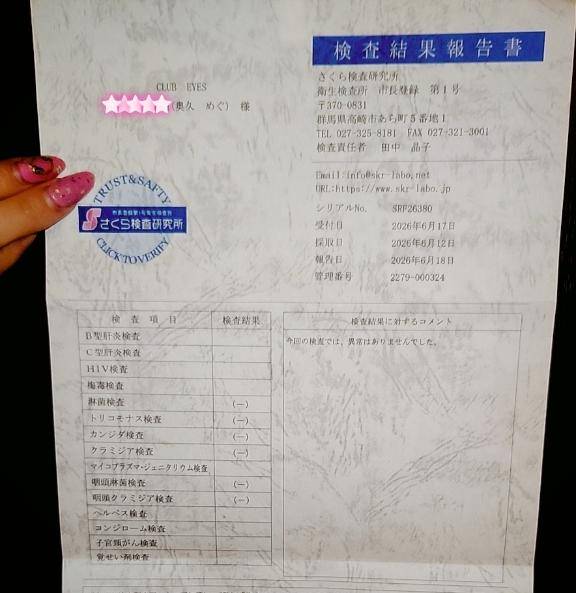 検査結果報告書
CLUB EYES
(奥久 めぐ) 様
さくら検査研究所
衛生検査所 市長登録 第1号
〒370-0831
群馬県高崎市あら町5番地1
TEL 027-325-8181 FAX 027-321-3001
検査責任者 田中 晶子
Email:info@skr-labo.net
URL:https://www.skr-labo.jp
シリアルNo. SRF26380
受付日 2026年6月17日
採取日 2026年6月12日
報告日 2026年6月18日
管理番号 2279-000324
TRUST&SAFTY
さくら検査研究所
CLICK TO VERIFY
検査項目 検査結果
B型肝炎検査
C型肝炎検査
HIV検査
梅毒検査
淋菌検査 (−)
トリコモナス検査 (−)
カンジダ検査 (−)
クラミジア検査 (−)
マイコプラズマ・ジェニタリウム検査
咽頭淋菌検査 (−)
咽頭クラミジア検査 (−)
ヘルペス検査
コンジローム検査
子宮頸がん検査
覚せい剤検査
検査結果に対するコメント
今回の検査では、異常はありませんでした。